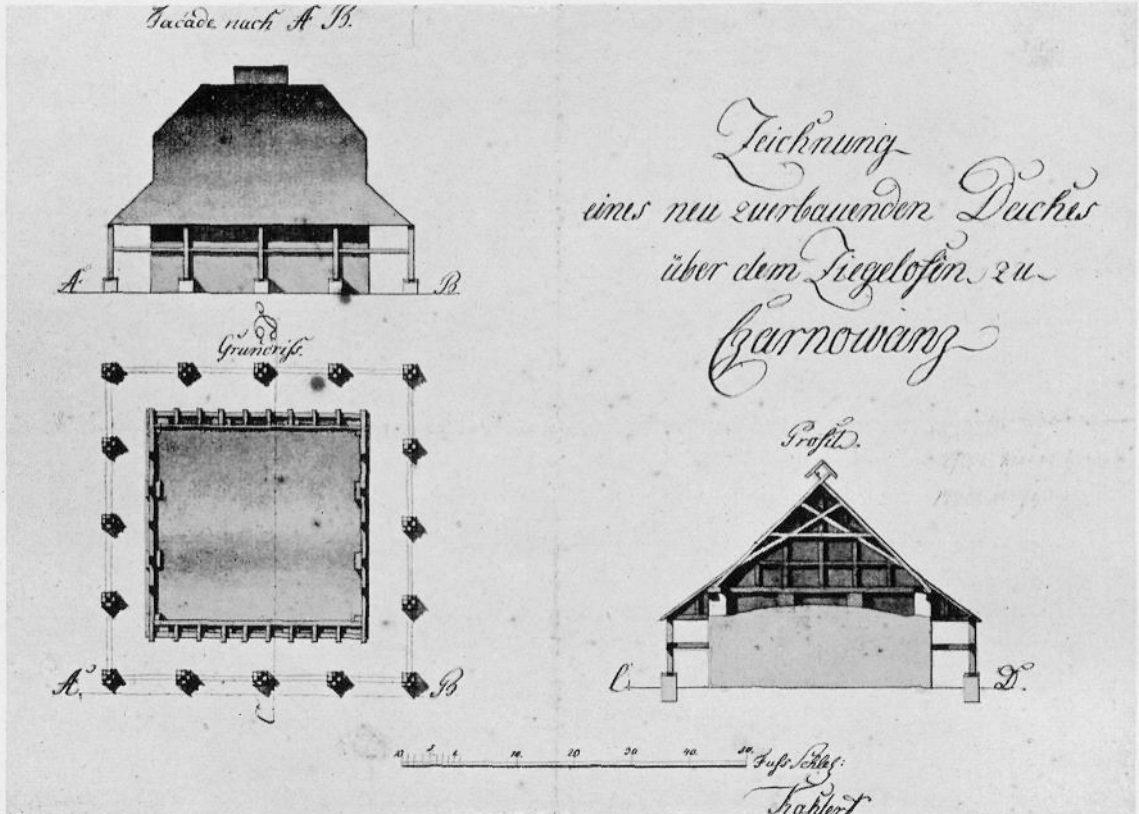 Facade nach A B.
A.
B
D
Grundriß.
A.
B
C
Zeichnung
eines neu zuerbauenden Daches
über dem Ziegelofen zu
Czarnowanz
Profil.
C.
D.
10 5 10. 20 30. 40. 50.
Fuss Schles:
Kahlert